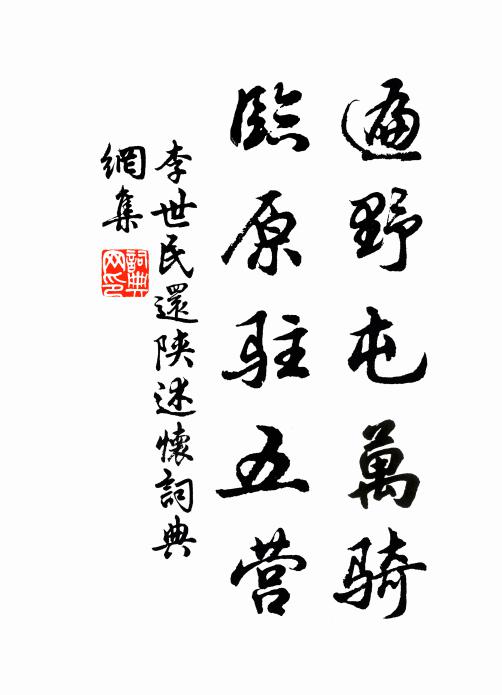 遍野屯萬骑
臨原驻五营
李世民還陝述懷詞典
網集
詞典
网印